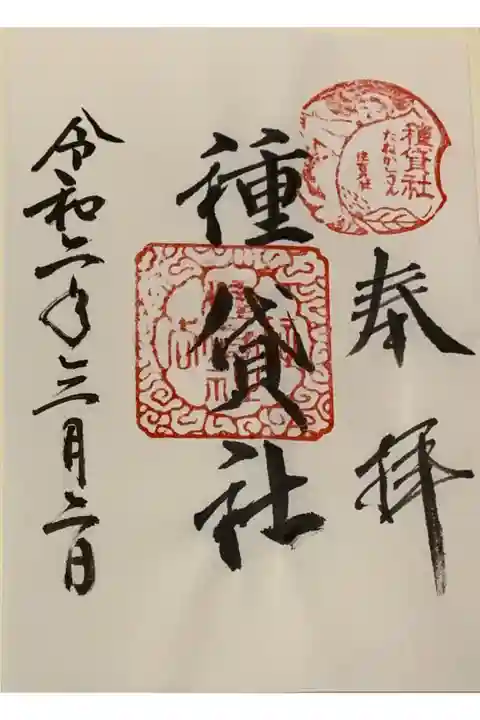 奉拝
種貸社
たねかしさん
住吉大社
種貸社
令和二年三月二日